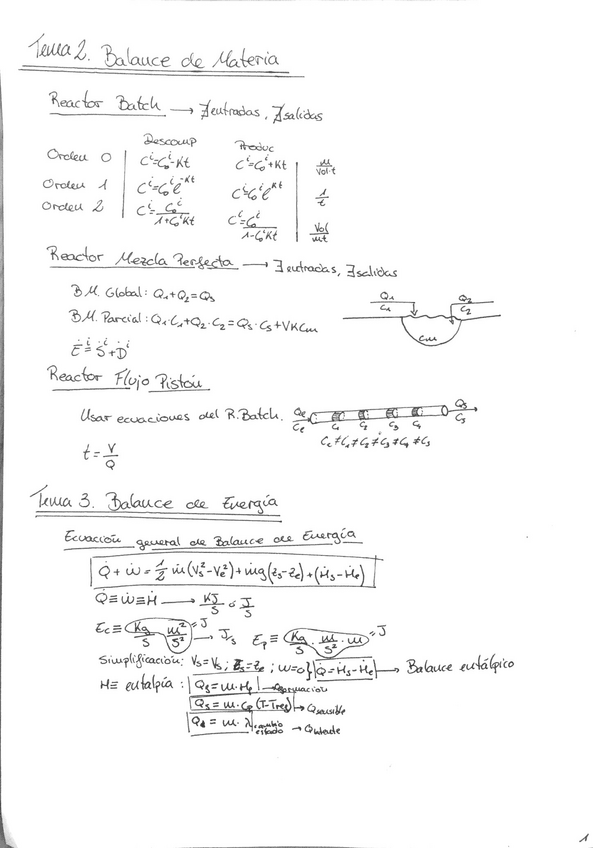 Tema 2. Balance de Materia
Reactor Batch → ∄entradas, ∄salidas
Descomp Produc
Orden 0 Cⁱ=C₀ⁱ-Kt Cⁱ=C₀ⁱ+Kt m/Vol·t
Orden 1 Cⁱ=C₀ⁱe^-Kt Cⁱ=C₀ⁱe^Kt 1/t
Orden 2 Cⁱ=C₀ⁱ/1+C₀ⁱKt Cⁱ=C₀ⁱ/1-C₀ⁱKt Vol/m·t
Reactor Mezcla Perfecta → ∃entradas, ∃salidas
B.M. Global: Q₁+Q₂=Q₃
B.M. Parcial: Q₁·C₁+Q₂·C₂=Q₃·C₃+VKCm
Ėⁱ=Ṡⁱ+Ḋⁱ
Q₁ C₁ Q₂ C₂ Cm
Reactor Flujo Pistón
Usar ecuaciones del R.Batch.
Qe Ce C₁ C₂ C₃ C₄ Qs Cs
Ce≠C₁≠C₂≠C₃≠C₄≠Cs
t=V/Q
Tema 3. Balance de Energía
Ecuación general de Balance de Energía
Q̇+ẇ=1/2 ṁ(Vs²-Ve²)+ṁg(zs-ze)+(Ḣs-Ḣe)
Q̇≡ẇ≡Ḣ → KJ/s ó J/s
Ec≡Kg/s · m²/s² =J → J/s Ep≡Kg/s · m/s² · m =J
Simplificación: Vs=Vs ; Zs=Ze ; w=0} Q̇=Ḣs-Ḣe → Balance entálpico
H≡ entalpía : Qs=m·Hf → Qformación
Qs=m·cp(T-Tref) → Qsensible
Qλ=m·λ cambio estado → Qlatente
1